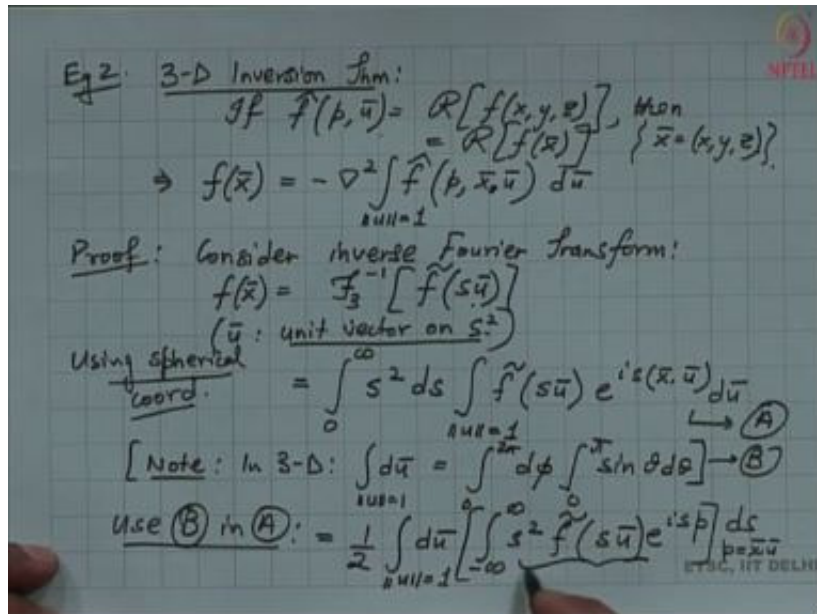 NPTEL
Eg 2. 3-D Inversion Thm:
If f̂(p, ū) = R[f(x, y, z)], then
= R[f(x̄)] {x̄ = (x, y, z)}
⇒ f(x̄) = - ∇² ∫_{||u||=1} f̂(p, x̄.ū) dū
Proof: Consider inverse Fourier Transform:
f(x̄) = F₃⁻¹ [f̃(sū)]
(ū: unit vector on S²)
Using spherical coord. = ∫₀^∞ s² ds ∫_{||u||=1} f̃(sū) e^{is(x̄.ū)} dū
→ Ⓐ
[Note: In 3-D: ∫_{||u||=1} dū = ∫₀^{2π} dφ ∫₀^π sin θ dθ] → Ⓑ
Use Ⓑ in Ⓐ: = 1/2 ∫_{||u||=1} dū [∫_{-∞}^∞ s² f̃(sū) e^{isp}] ds p=x̄.ū
ETSC, IIT DELHI